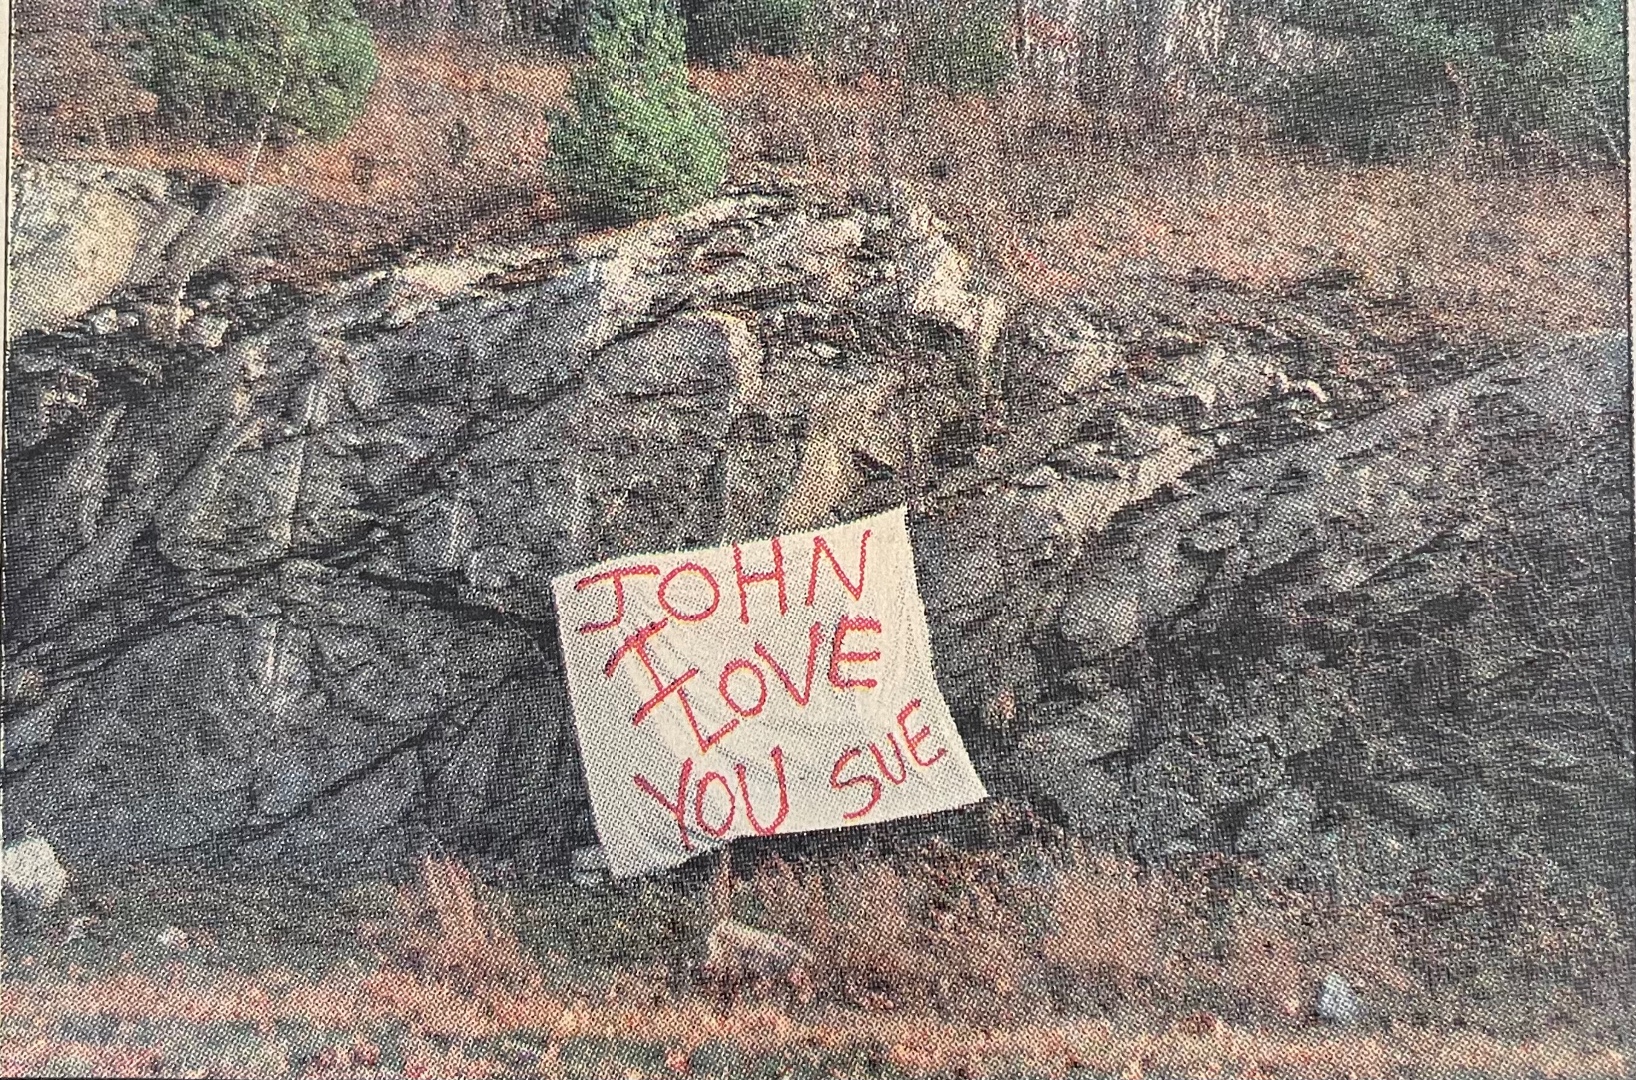 JOHN
I LOVE
YOU SUE